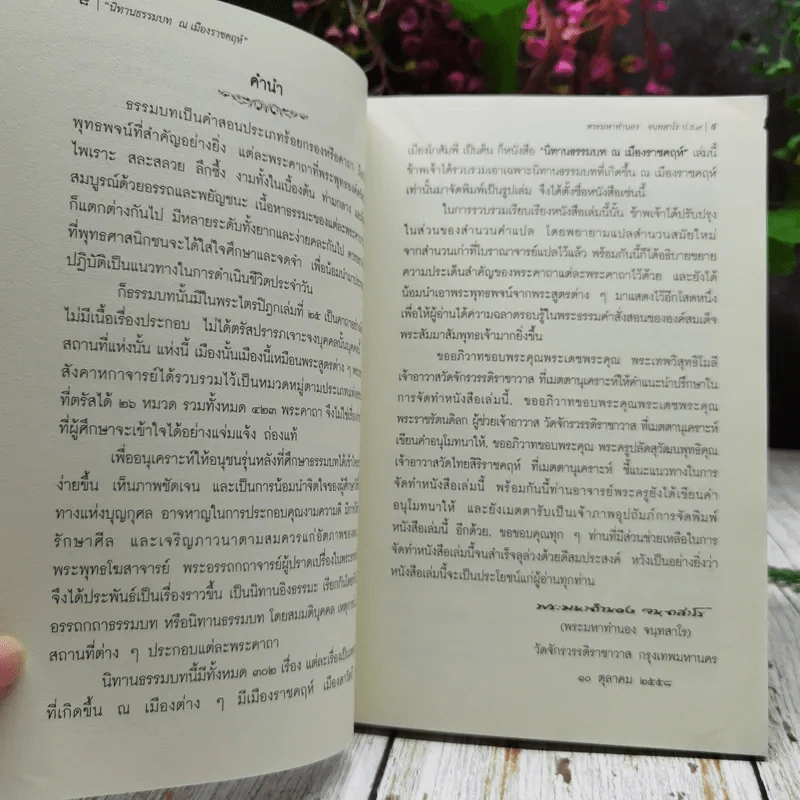 ๘ | "นิทานธรรมบท ณ เมืองราชคฤห์"
คำนำ
ธรรมบทเป็นคำสอนประเภทร้อยกรองหรือคาถา
พุทธพจน์ที่สำคัญอย่างยิ่ง แต่ละพระคาถาที่พระพุทธองค์ตรัส
ไพเราะ สละสลวย ลึกซึ้ง งามทั้งในเบื้องต้น ท่ามกลาง
สมบูรณ์ด้วยอรรถและพยัญชนะ เนื้อหาธรรมะของแต่ละพระคาถา
ก็แตกต่างกันไป มีหลายระดับทั้งยากและง่ายคละกันไป
ที่พุทธศาสนิกชนจะได้ใส่ใจศึกษาและจดจำ เพื่อน้อมนำมา
ปฏิบัติเป็นแนวทางในการดำเนินชีวิตประจำวัน
ก็ธรรมบทนั้นมีในพระไตรปิฎกเล่มที่ ๒๕ เป็นคาถาอย่างเดียว
ไม่มีเนื้อเรื่องประกอบ ไม่ได้ตรัสปรารภเจาะจงบุคคลนั้นบุคคลนี้
สถานที่แห่งนั้น แห่งนี้ เมืองนั้นเมืองนี้เหมือนพระสูตรต่าง ๆ
สังคาหกาจารย์ได้รวบรวมไว้เป็นหมวดหมู่ตามประเภทแห่ง
ที่ตรัสได้ ๒๖ หมวด รวมทั้งหมด ๔๒๓ พระคาถา จึงไม่ใช่เรื่อง
ที่ผู้ศึกษาจะเข้าใจได้อย่างแจ่มแจ้ง ถ่องแท้
เพื่ออนุเคราะห์ให้อนุชนรุ่นหลังที่ศึกษาธรรมบทได้เข้าใจ
ง่ายขึ้น เห็นภาพชัดเจน และเป็นการน้อมนำจิตใจของผู้ศึกษา
ทางแห่งบุญกุศล อาจหาญในการประกอบคุณงามความดี มีการ
รักษาศีล และเจริญภาวนาตามสมควรแก่อัตภาพของ
พระพุทธโฆสาจารย์ พระอรรถกถาจารย์ผู้ปราดเปรื่องในพระ
จึงได้ประพันธ์เป็นเรื่องราวขึ้น เป็นนิทานอิงธรรมะ เรียกกันโดย
อรรถกถาธรรมบท หรือนิทานธรรมบท โดยสมมติบุคคล เหตุการณ์
สถานที่ต่าง ๆ ประกอบแต่ละพระคาถา
นิทานธรรมบทนี้มีทั้งหมด ๓๐๒ เรื่อง แต่ละเรื่องเป็น
ที่เกิดขึ้น ณ เมืองต่าง ๆ มีเมืองราชคฤห์ เมืองสาวัตถี
พระมหาทำนอง จนฺทสาโร ป.ธ.๙ | ๕
เมืองโกสัมพี เป็นต้น ก็หนังสือ "นิทานธรรมบท ณ เมืองราชคฤห์" เล่มนี้
ข้าพเจ้าได้รวบรวมเอาเฉพาะนิทานธรรมบทที่เกิดขึ้น ณ เมืองราชคฤห์
เท่านั้นมาจัดพิมพ์เป็นรูปเล่ม จึงได้ตั้งชื่อหนังสือเช่นนี้
ในการรวบรวมเรียบเรียงหนังสือเล่มนี้นั้น ข้าพเจ้าได้ปรับปรุง
ในส่วนของสำนวนคำแปล โดยพยายามแปลสำนวนสมัยใหม่
จากสำนวนเก่าที่โบราณาจารย์แปลไว้แล้ว พร้อมกันนี้ก็ได้อธิบายขยาย
ความประเด็นสำคัญของพระคาถาแต่ละพระคาถาไว้ด้วย และยังได้
น้อมนำเอาพระพุทธพจน์จากพระสูตรต่าง ๆ มาแสดงไว้อีกโสตหนึ่ง
เพื่อให้ผู้อ่านได้ความฉลาดรอบรู้ในพระธรรมคำสั่งสอนขององค์สมเด็จ
พระสัมมาสัมพุทธเจ้ามากยิ่งขึ้น
ขออภิวาทขอบพระคุณพระเดชพระคุณ พระเทพวิสุทธิโมลี
เจ้าอาวาสวัดจักรวรรดิราชาวาส ที่เมตตานุเคราะห์ให้คำแนะนำปรึกษาใน
การจัดทำหนังสือเล่มนี้, ขออภิวาทขอบพระคุณพระเดชพระคุณ
พระราชรัตนดิลก ผู้ช่วยเจ้าอาวาส วัดจักรวรรดิราชาวาส ที่เมตตานุเคราะห์
เขียนคำอนุโมทนาให้, ขออภิวาทขอบพระคุณ พระครูปลัดสุวัฒนพุทธิคุณ
เจ้าอาวาสวัดไทยสิริราชคฤห์ ที่เมตตานุเคราะห์ ชี้แนะแนวทางในการ
จัดทำหนังสือเล่มนี้ พร้อมกันนี้ท่านอาจารย์พระครูยังได้เขียนคำ
อนุโมทนาให้ และยังเมตตารับเป็นเจ้าภาพอุปถัมภ์การจัดพิมพ์
หนังสือเล่มนี้ อีกด้วย, ขอขอบคุณทุก ๆ ท่านที่มีส่วนช่วยเหลือในการ
จัดทำหนังสือเล่มนี้จนสำเร็จลุล่วงด้วยดีสมประสงค์ หวังเป็นอย่างยิ่งว่า
หนังสือเล่มนี้จะเป็นประโยชน์แก่ผู้อ่านทุกท่าน
พระมหาทำนอง จนฺทสาโร
(พระมหาทำนอง จนฺทสาโร)
วัดจักรวรรดิราชาวาส กรุงเทพมหานคร
๑๐ ตุลาคม ๒๕๕๘